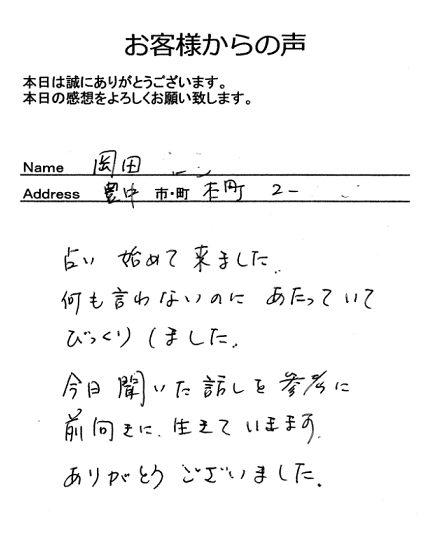 お客様からの声
本日は誠にありがとうございます。
本日の感想をよろしくお願い致します。
Name 岡田
Address 豊中 市・町 本町 2-
占い 始めて 来ました.
何も言わないのに あたっていて
びっくりしました.
今日聞いた話しを参考に
前向きに. 生きていきます.
ありがとうございました.